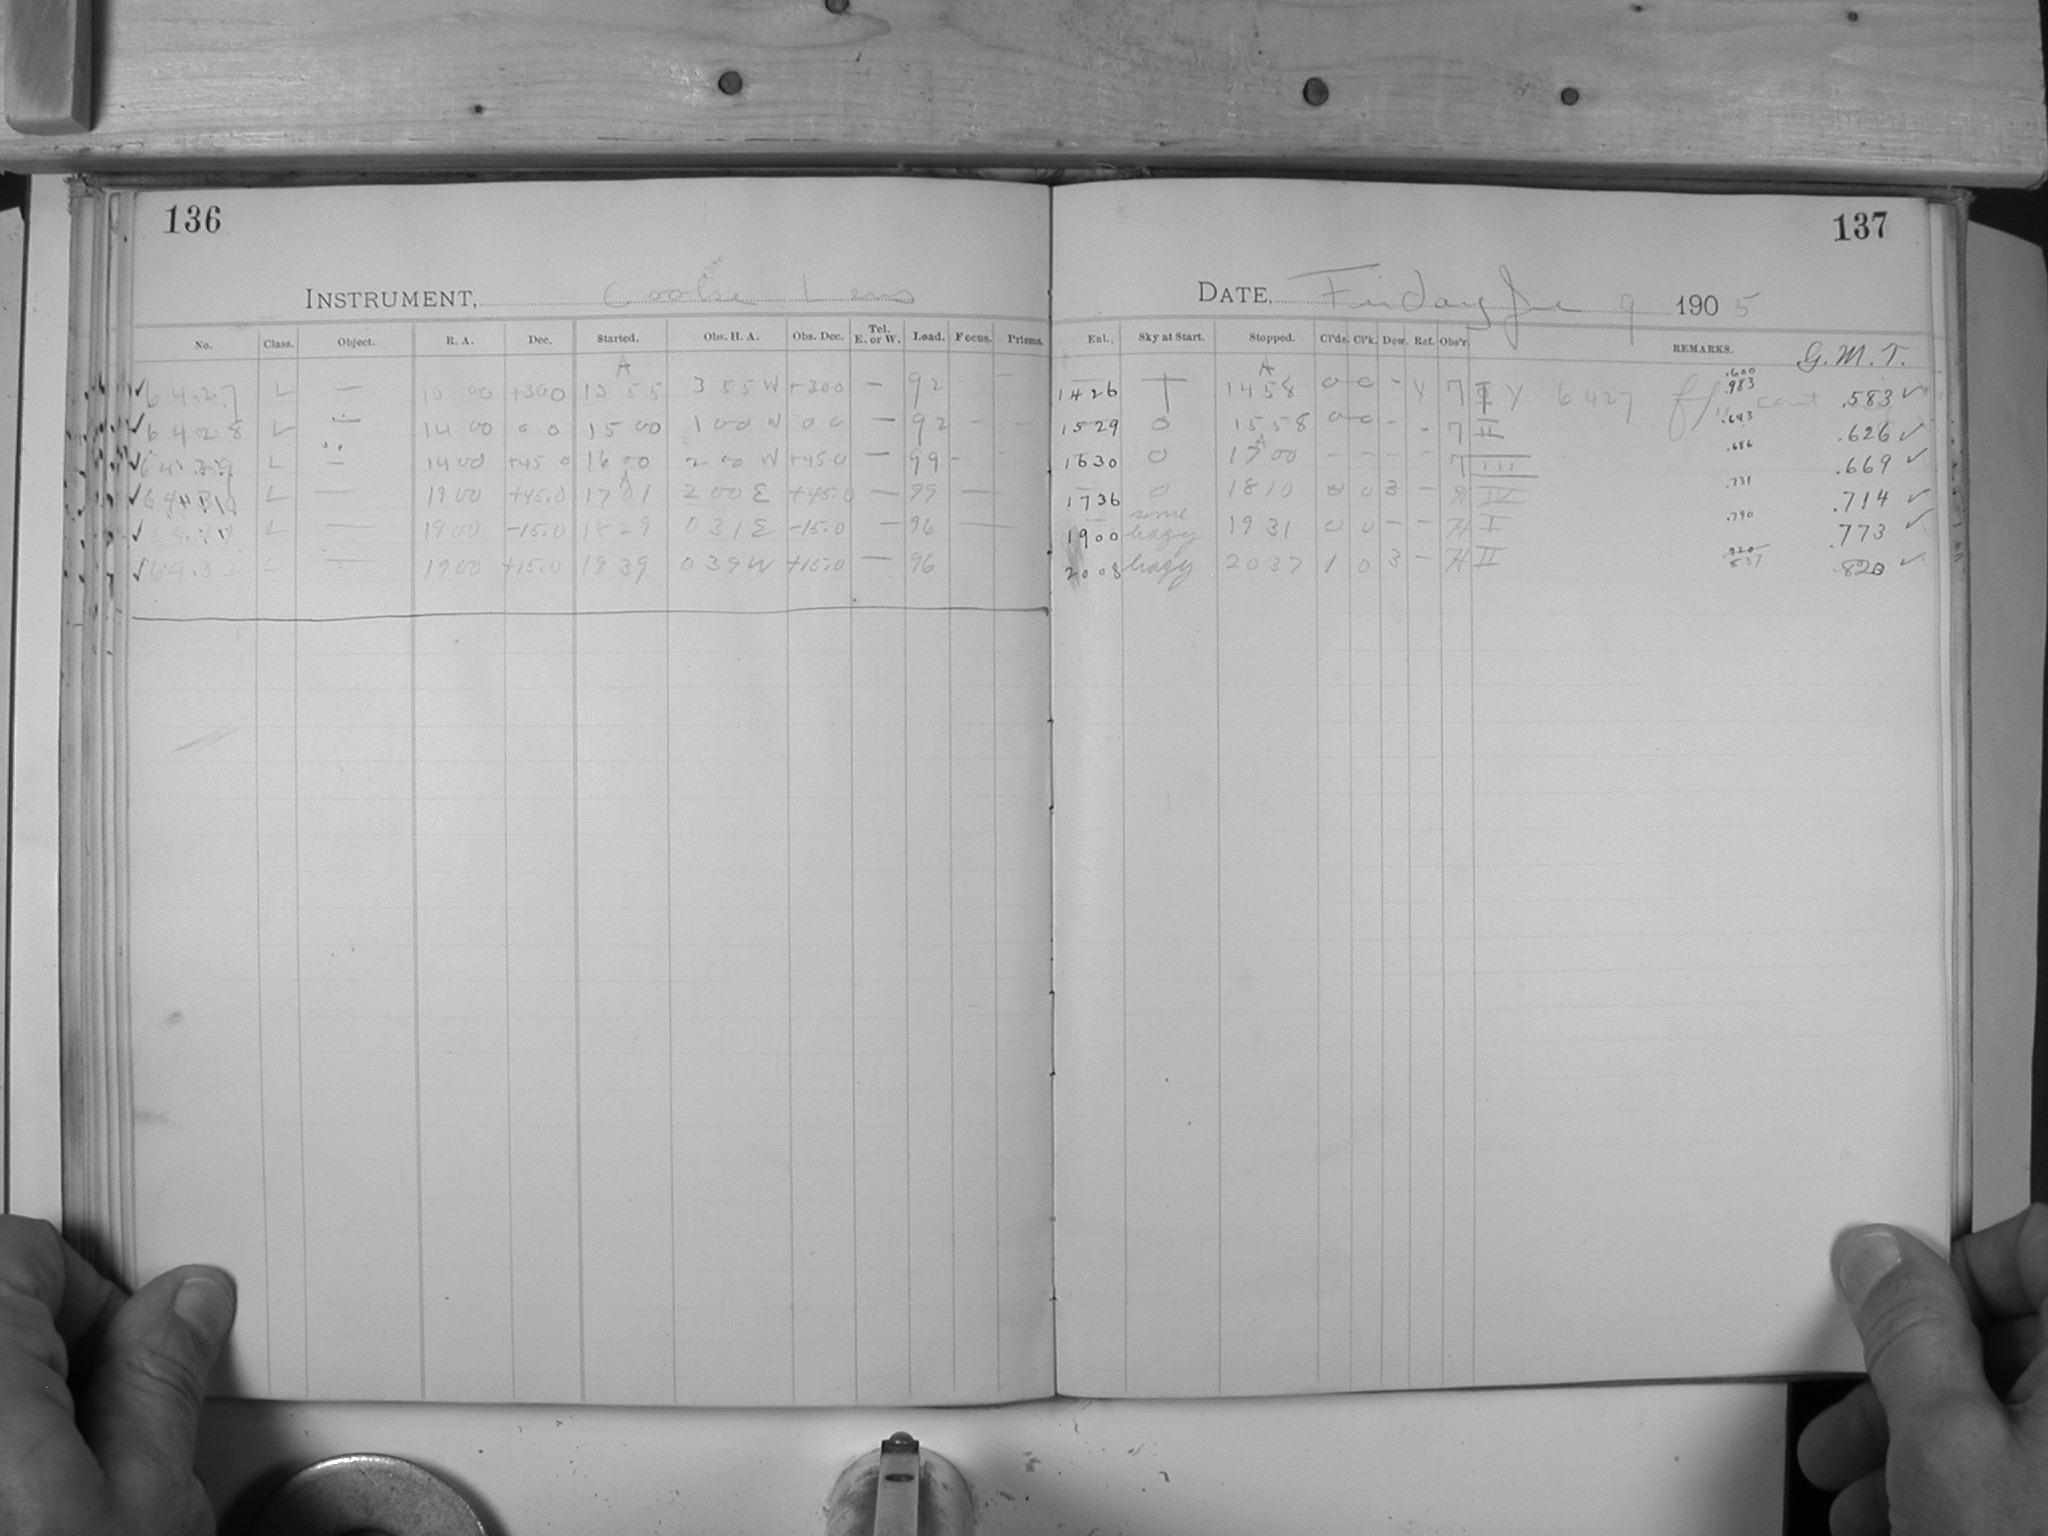 136
INSTRUMENT, Cooke Lens
No. Class. Object. R. A. Dec. Started. Obs. H. A. Obs. Dec. Tel. E. or W. Load. Focus. Prisms.
A
✓6427 L — 10 00 +300 13 55 3 55 W +300 — 92 - —
✓6428 L — 14 00 0 0 15 00 1 00 W 0 0 — 92 - -
✓ L — 14 00 +45 0 16 00 2 00 W +450 — 99 -
A
✓ L — 19 00 +45.0 17 01 2 00 E +45.0 — 99 —
✓ L — 19 00 -15.0 18 29 0 31 E -15.0 — 96 —
✓ L — 19 00 +15.0 19 39 0 39 W +15.0 — 96
137
DATE, Friday 9 1905
Enl. Sky at Start. Stopped. Cl'ds. Cl'k. Dew. Ref. Obs'r. REMARKS. G.M.T.
A .600
1426 T 14 58 0 0 - Y 7 I Y 6427 .983 .583 ✓
1529 0 15 58 0 0 - - 7 II .643 .626 ✓
A
1630 0 17 00 - - - - 7 III .686 .669 ✓
1736 0 18 10 0 3 — H IV .731 .714 ✓
1900 some hazy 19 31 0 0 - - H I .790 .773 ✓
2008 hazy 20 37 1 0 3 — H II .837 .820 ✓